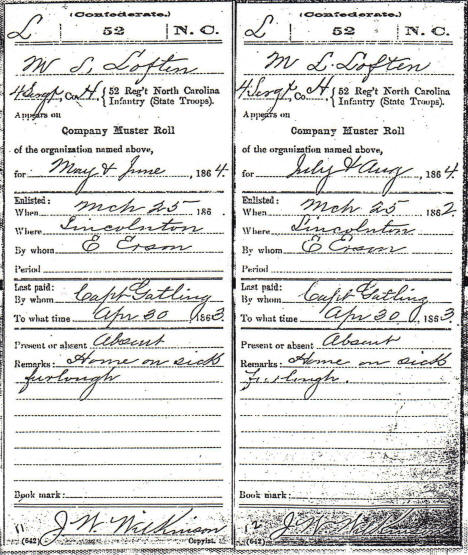 (Confederate.)
L | 52 | N. C.
W S. Loften
4 Sergt, Co. H, { 52 Reg't North Carolina
Infantry (State Troops).
Appears on
Company Muster Roll
of the organization named above,
for May & June, 1864.
Enlisted:
When Mch 25 186 .
Where Lincolnton
By whom E Erson
Period
Last paid:
By whom Capt Gatling
To what time Apr 30, 1863.
Present or absent Absent
Remarks: Home on sick
furlough
Book mark:
11
J W Wilkinson
(642) Copyist.
(Confederate.)
L | 52 | N. C.
M L. Loften
4 Sergt, Co. H, { 52 Reg't North Carolina
Infantry (State Troops).
Appears on
Company Muster Roll
of the organization named above,
for July & Aug, 1864.
Enlisted:
When Mch 25 1862.
Where Lincolnton
By whom E Erson
Period
Last paid:
By whom Capt Gatling
To what time Apr 30, 1863.
Present or absent Absent
Remarks: Home on sick
furlough.
Book mark:
12
J W Wilkinson
(642)